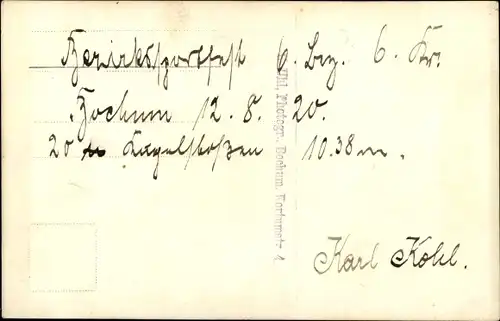 Bezirkssportfest 6. Bez. 6. Kr.
Bochum 12.8.20.
20 Kugelstoßen 10.38 m.
Karl Kohl.
Uhl, Photogr. Bochum,